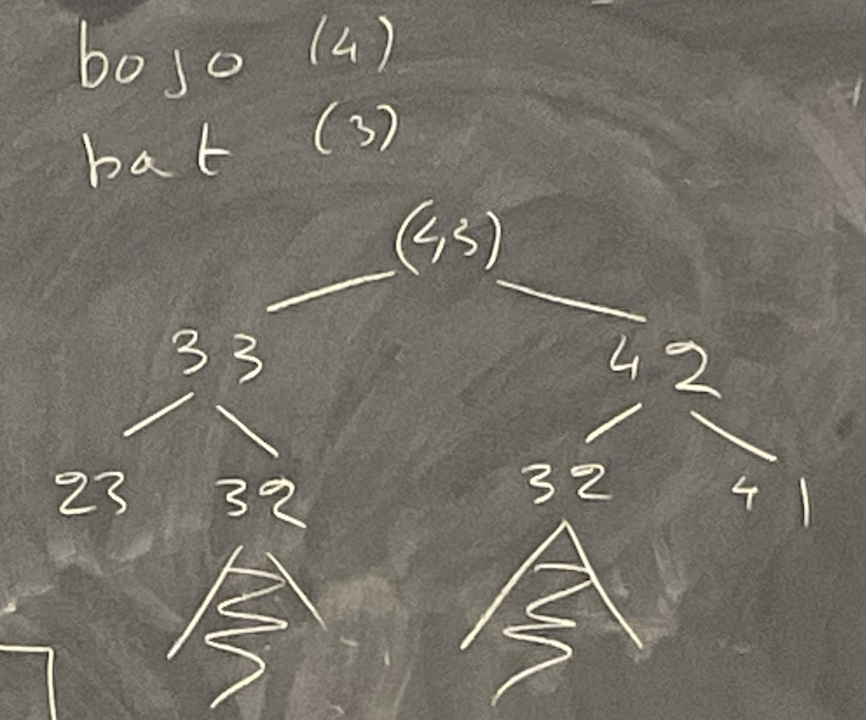 bojo (4)
bat (3)
(4,3)
33 42
23 32 32 41